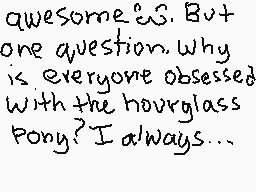 awesome ^ω^. But
one question. Why
is everyone obsessed
with the hourglass
pony? I always...